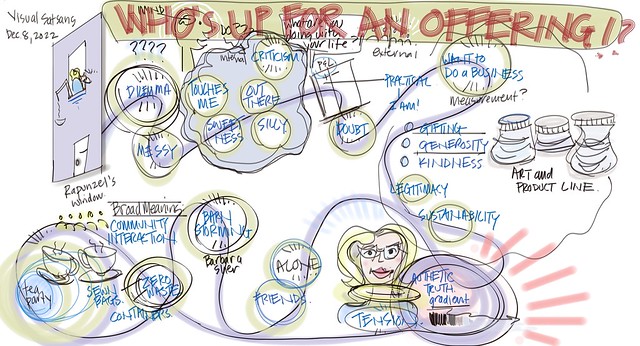 WHO'S UP FOR AN OFFERING!?
VISUAL SATSANG
DEC 8, 2022
MIND
????
what are you
doing with
your life?
external
internal
CRITICISM
DILEMMA
TOUCHES
ME
OUT
THERE
SILLY
MESSY
P&L
DOUBT
PRACTICAL
2 AM!
WANT TO
DO A BUSINESS
measurement?
GIFTING
GENEROSITY
KINDNESS
ART and
PRODUCT LINE.
LEGITIMACY
SUSTAINABILITY
Rapunzel's
window.
Broad Meaning:
COMMUNITY
INTERACTION
BARN
STORMING
Barbara
Sher
tea
party
SEWN
BAGS.
ZERO
WASTE
CONTAINERS.
ALONE
FRIENDS.
TENSION
AUTHENTIC
TRUTH
gradient